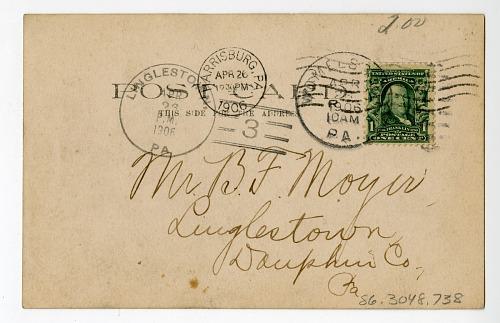 2.00
POST CARD
THIS SIDE FOR THE ADDRESS
LINGLESTOWN
P.M.
1906
PA.
HARRISBURG, PA.
APR 26
1906
3
1906
10AM
PA.
FRANKLIN
1 ONE CENT
Mr. B. F. Moyer
Linglestown,
Dauphin Co.,
Pa.
86.3048.738